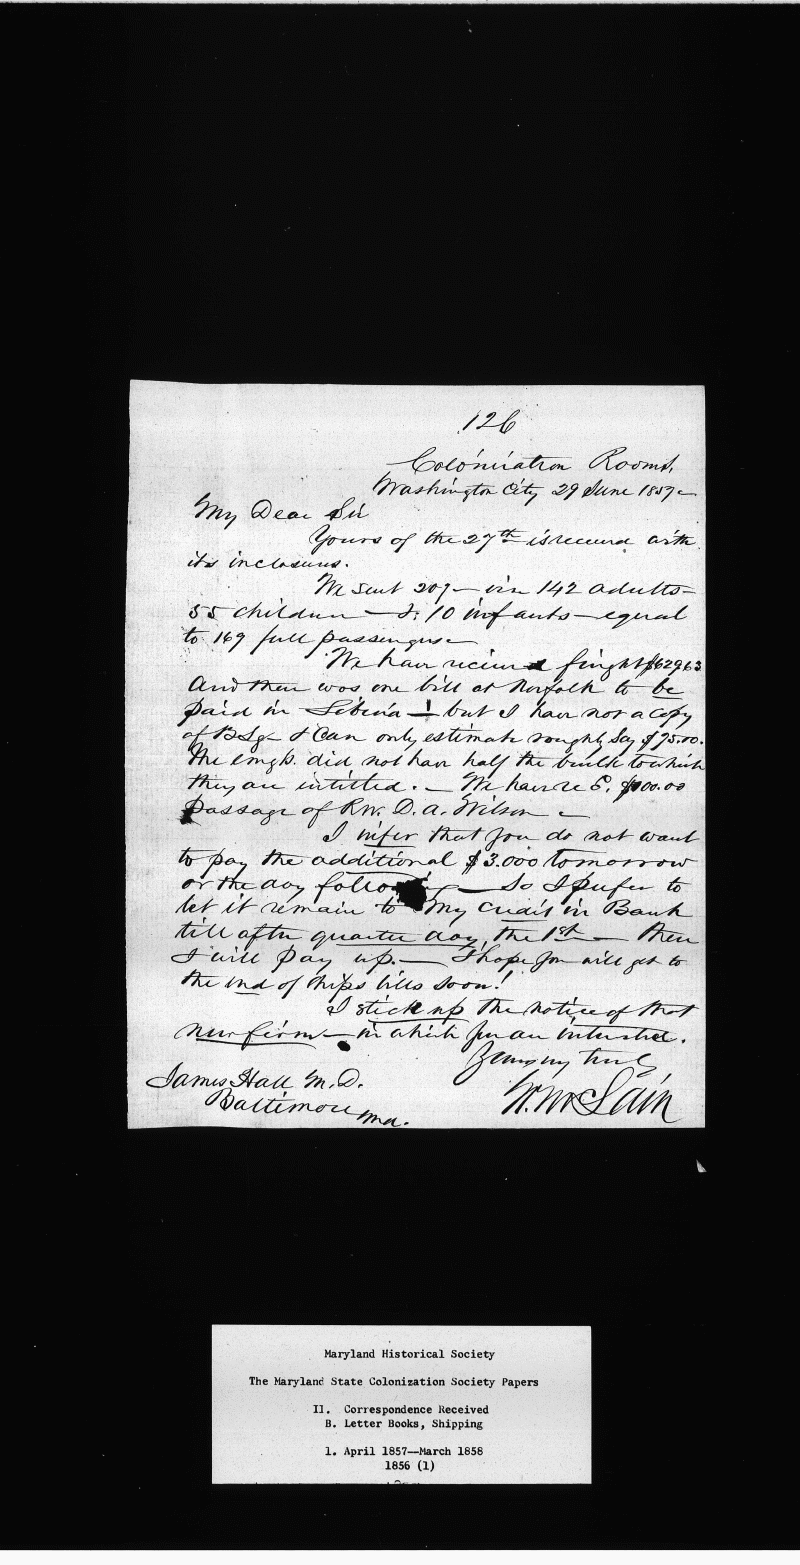 126
Colonization Rooms,
Washington City 29 June 1857
My Dear Sir
Yours of the 27th is received with
its inclosures.
We sent 207 — viz 142 adults —
55 children — & 10 infants — equal
to 169 full passengers —
We have received freight $629.63
And there was one bill at Norfolk to be
paid in Liberia — ! but I have not a copy
of B Lg & can only estimate roughly Say $75.00.
The emgts. did not have half the bulk to which
they are intitled. — We have rec $100.00
passage of Rev. D. A. Wilson —
I infer that you do not want
to pay the additional $3.000 tomorrow
or the day following — So I prefer to
let it remain to my credit in Bank
till after quarter day, the 1st — Then
I will pay up. — I hope you will get to
the end of ships bills soon!
I stick up the notice of that
new firm — in which you are interested.
Yours very truly
W. McLain
James Hall M. D.
Baltimore Md.
Maryland Historical Society
The Maryland State Colonization Society Papers
II. Correspondence Received
B. Letter Books, Shipping
1. April 1857--March 1858
1856 (1)